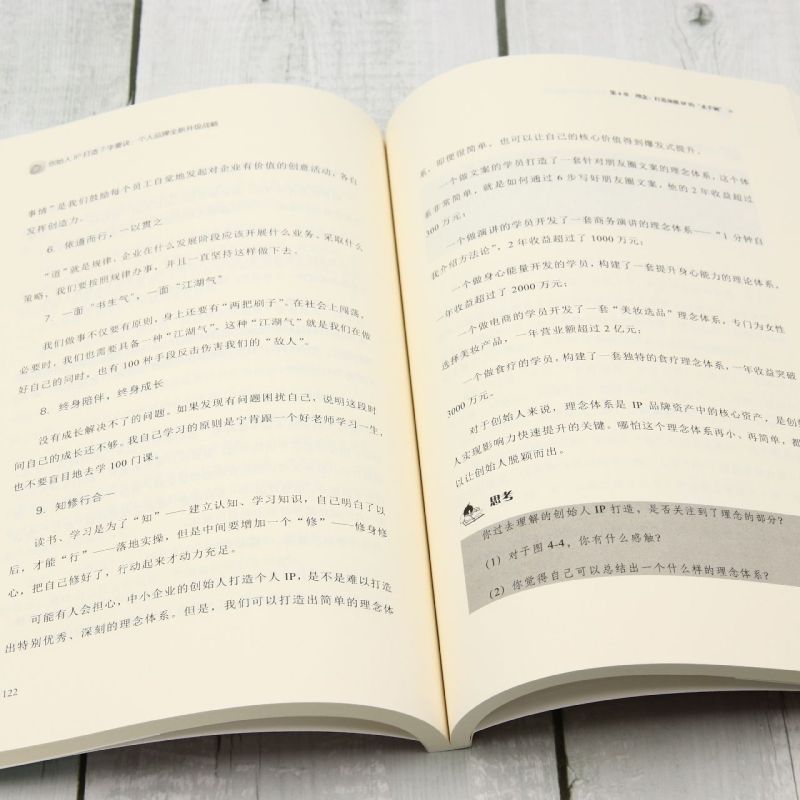 创始人 IP 打造7字要诀：个人品牌全新升级战略
事情”是我们鼓励每个员工自觉地发起对企业有价值的创意活动，各自
发挥创造力。
6. 依道而行，一以贯之
“道”就是规律，企业在什么发展阶段应该开展什么业务、采取什么
策略，我们要按照规律办事，并且一直坚持这样做下去。
7. 一面“书生气”，一面“江湖气”
我们做事不仅要有原则，身上还要有“两把刷子”。在社会上闯荡，
必要时，我们也需要具备一种“江湖气”。这种“江湖气”就是我们在做
好自己的同时，也有 100 种手段反击伤害我们的“敌人”。
8. 终身陪伴，终身成长
没有成长解决不了的问题。如果发现有问题困扰自己，说明这段时
间自己的成长还不够。我自己学习的原则是宁肯跟一个好老师学习一生，
也不要盲目地去学 100 门课。
9. 知修行合一
读书、学习是为了“知”——建立认知、学习知识，自己明白了以
后，才能“行”——落地实操，但是中间要增加一个“修”——修身修
心，把自己修好了，行动起来才动力充足。
可能有人会担心，中小企业的创始人打造个人 IP，是不是难以打造
出特别优秀、深刻的理念体系。但是，我们可以打造出简单的理念体
122
第4章 理念：打造顶级IP的“杀手锏”
系，即便很简单，也可以让自己的核心价值得到爆发式提升。
一个做文案的学员打造了一套针对朋友圈文案的理念体系，这个体
系非常简单，就是如何通过 6 步写好朋友圈文案，他的 2 年收益超过
300 万元；
一个做演讲的学员开发了一套商务演讲的理念体系——“1 分钟自
我介绍方法论”，2 年收益超过了 1000 万元；
一个做身心能量开发的学员，构建了一套提升身心能力的理论体系，
一年收益超过了 2000 万元；
一个做电商的学员开发了一套“美妆选品”理念体系，专门为女性
选择美妆产品，一年营业额超过 2 亿元；
一个做食疗的学员，构建了一套独特的食疗理念体系，一年收益突破
3000 万元。
对于创始人来说，理念体系是 IP 品牌资产中的核心资产，是创始
人实现影响力快速提升的关键。哪怕这个理念体系再小、再简单，都
以让创始人脱颖而出。
思考
你过去理解的创始人 IP 打造，是否关注到了理念的部分？
(1) 对于图 4-4，你有什么感触？
(2) 你觉得自己可以总结出一个什么样的理念体系？